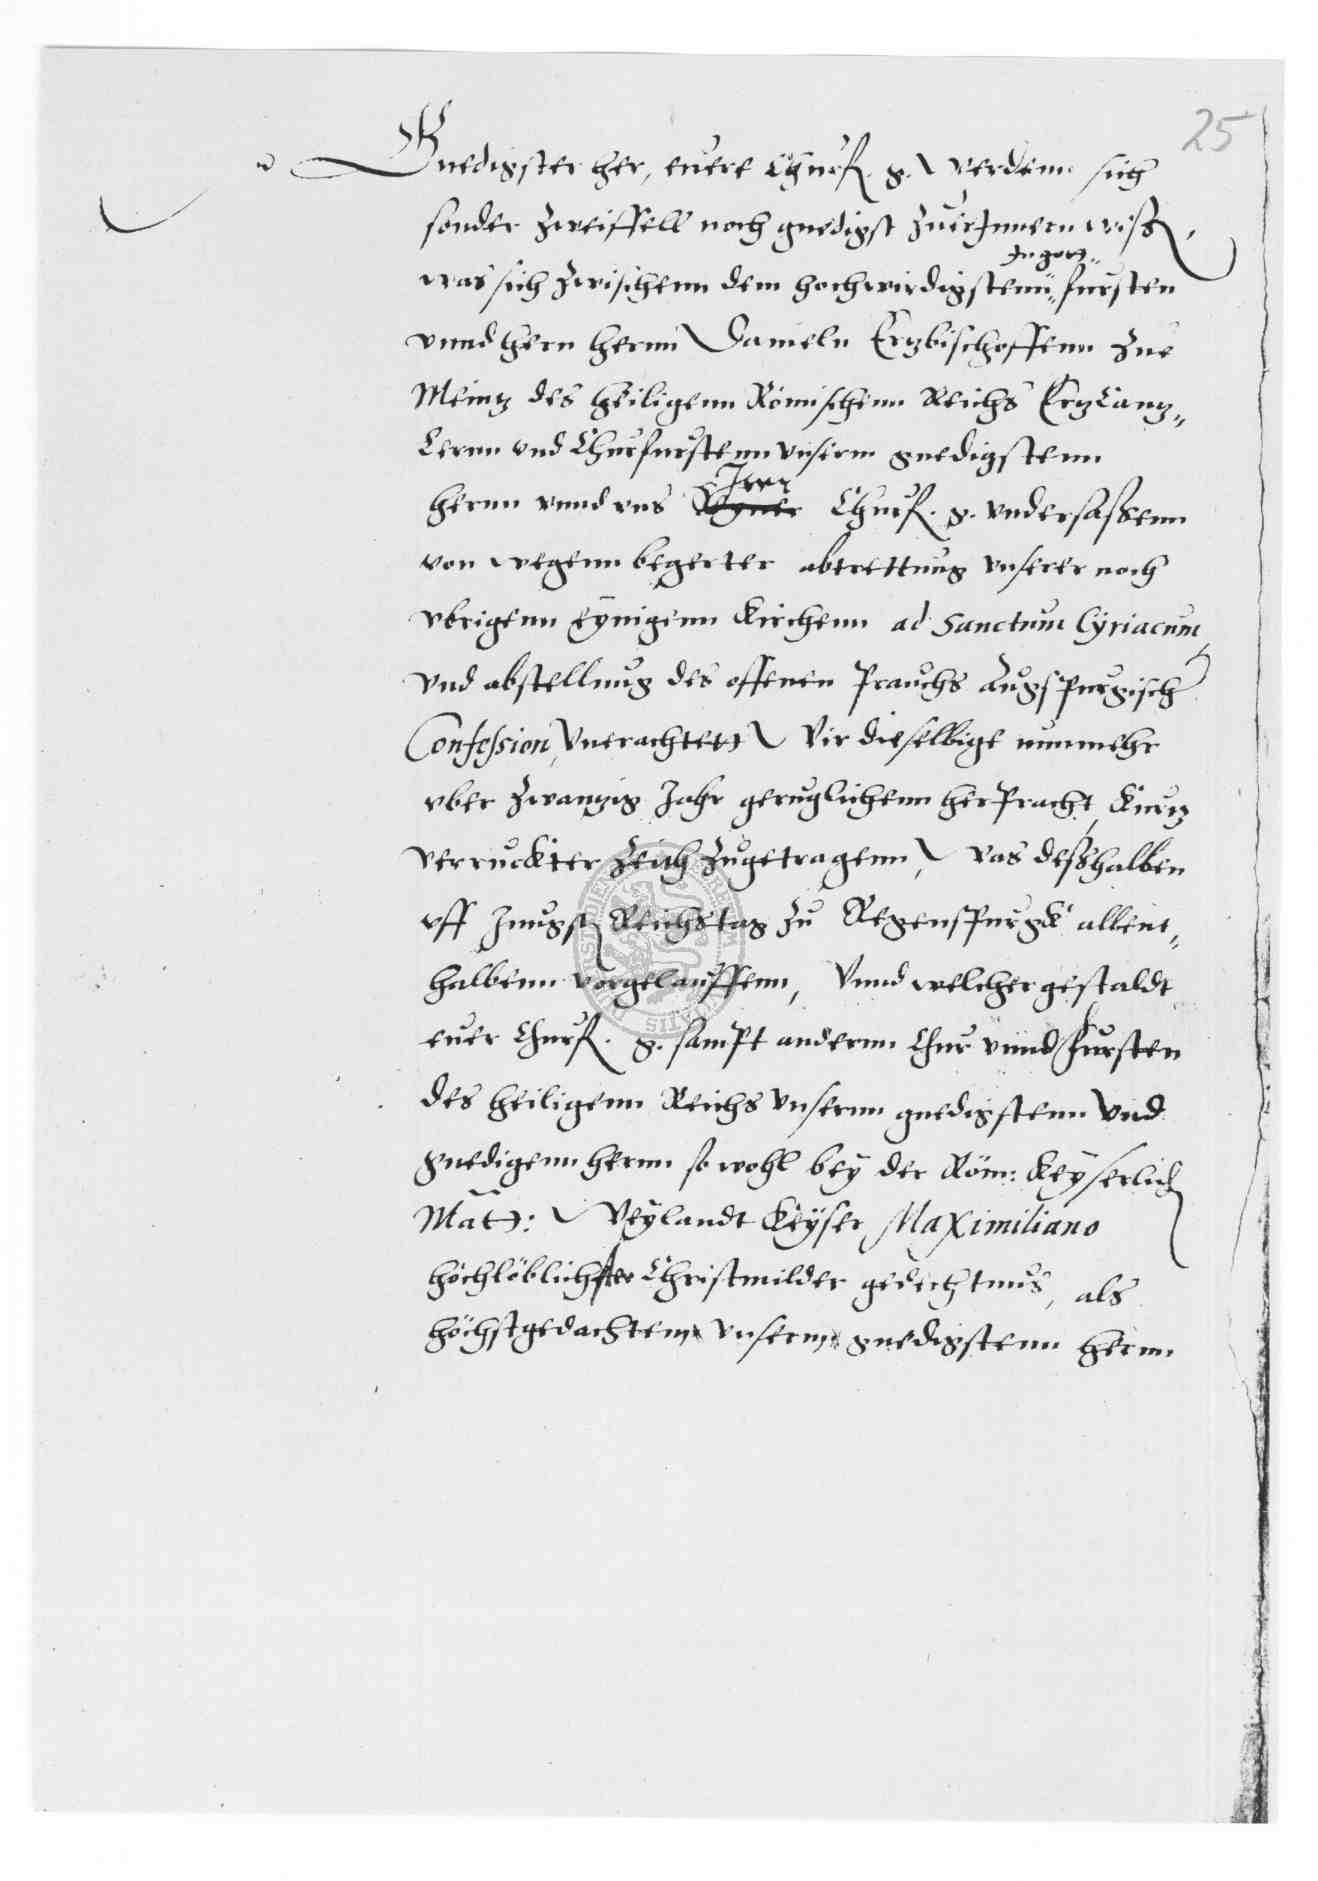 25
Gnedigster her, euere Churf. g. werdenn sich
sonder Zweiffell noch gnedigst ZuerInnern wissen,
In gott
was sich Zwischenn dem hochwirdigstenn fursten
vnnd hern hernn Danieln Ertzbischoffenn Zue
Meintz des heiligenn Römischenn Reichs ErtzCantz„
lernn vnd Churfurstenn vnserm gnedigstenn
Irer
hernn vnnd vns Churf. g. vndersassenn
von wegenn begerter abtrettung vnserer noch
vbrigenn eynigenn Kirchenn ad Sanctum Cyriacum,
vnd abstellung des offenen Prauchs Augspurgischer
Confession, vnerachtett wir dieselbige nunmehr
vber Zwanzig Jahr geruglichenn herPracht, Kurtz
verruckter Zeith Zugetragenn, was desshalben
vff Jungst Reichstag Zu Regenspurgk allent„
halbenn vorgelauffenn, Vnnd welcher gestaldt
euer Churf. g. sampt andernn Chur vnnd Fursten
des heiligenn Reichs vnsernn gnedigstenn Vnd
gnedigenn hernn so wohl bey der Röm: Keyserlichen
Matt: Weylandt Keyser Maximiliano
hochlöblichster Christmilder gedechtnus, als
höchstgedachtem vnserm gnedigstenn hernn